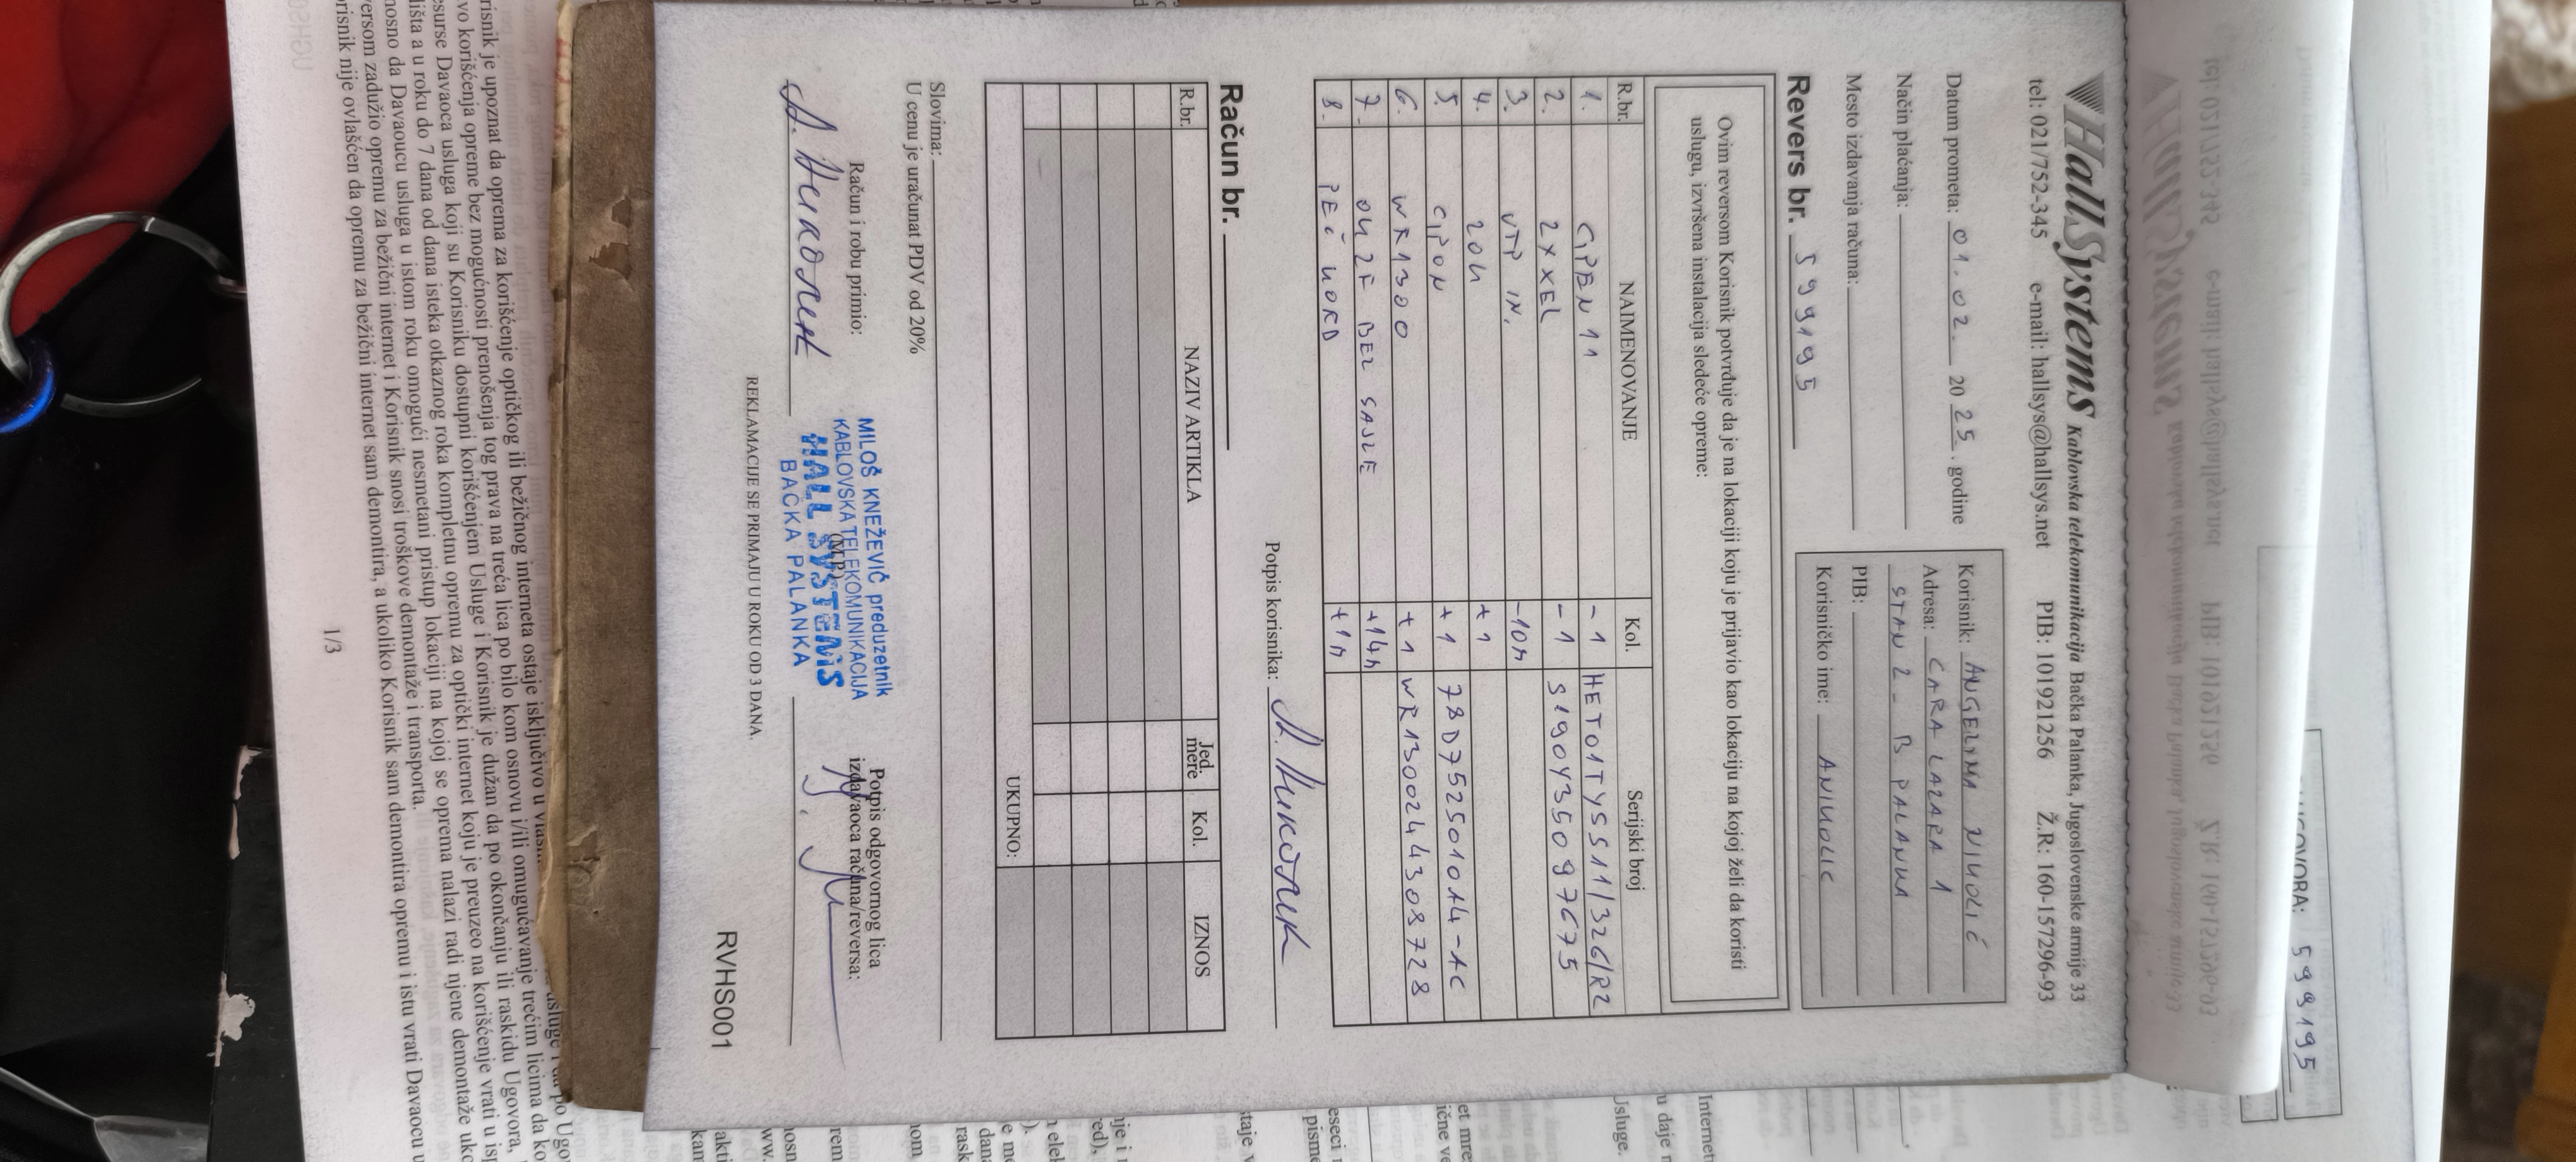 HallSystems Kablovska telekomunikacija Bačka Palanka, Jugoslovenske armije 33
tel: 021/752-345 e-mail: hallsys@hallsys.net PIB: 101921256 Ž.R: 160-157296-93
Datum prometa: 01.02. 2025. godine
Način plaćanja:
Mesto izdavanja računa:
Korisnik: ANGELINA NIKOLIĆ
Adresa: CARA LAZARA 1
STAN 2 - B PALANKA
PIB:
Korisničko ime: ANIKOLIC
Revers br. 599195
Ovim reversom Korisnik potvrđuje da je na lokaciji koju je prijavio kao lokaciju na kojoj želi da koristi
uslugu, izvršena instalacija sledeće opreme:
R.br. NAIMENOVANJE Kol. Serijski broj
1. GPEN 11 -1 HET01TYSS11/326/R2
2. ZYXEL -1 S190Y35097675
3. UTP IN. -10m
4. ZON +1
5. GPON +1 78D752501014-AC
6. WR1300 +1 WR1300244308728
7. OK 2F BEZ SAJLE +14m
8. PEČ KORD +1m
Potpis korisnika: А. Николић
Račun br.
R.br. NAZIV ARTIKLA Jed. mere Kol. IZNOS
UKUPNO:
Slovima:
U cenu je uračunat PDV od 20%
Račun i robu primio:
А. Николић
MILOŠ KNEŽEVIĆ preduzetnik
KABLOVSKA TELEKOMUNIKACIJA
(M.P.)
HALL SYSTEMS
BAČKA PALANKA
Potpis odgovornog lica
izdavaoca računa/reversa:
REKLAMACIJE SE PRIMAJU U ROKU OD 3 DANA.
RVHS001
UGOVORA: 599195
risnik je upoznat da oprema za korišćenje optičkog ili bežičnog interneta ostaje isključivo u
vo korišćenja opreme bez mogućnosti prenošenja tog prava na treća lica po bilo kom osnovu i/ili omogućavanje trećim licima da ko
surse Davaoca usluga koji su Korisniku dostupni korišćenjem Usluge i Korisnik je dužan da po okončanju ili raskidu Ugovora,
lišta a u roku do 7 dana od dana isteka otkaznog roka kompletnu opremu za optički internet koju je preuzeo na korišćenje vrati u isp
nosno da Davaocu usluga u istom roku omogući nesmetani pristup lokaciji na kojoj se oprema nalazi radi njene demontaže uko
versom zadužio opremu za bežični internet i Korisnik snosi troškove demontaže i transporta.
orisnik nije ovlašćen da opremu za bežični internet sam demontira, a ukoliko Korisnik sam demontira opremu i istu vrati Davaocu u
1/3